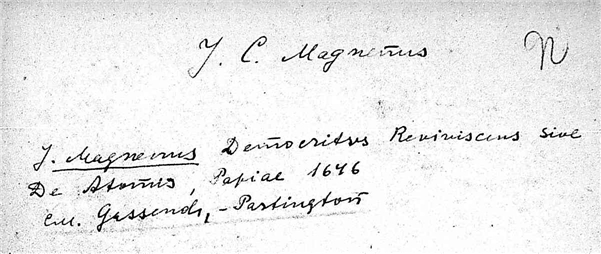 J. C. Magnenus
N
J. Magnenus Democritus Reviviscens sive
De Atomis, Papiae 1646
см. Gassendi, - Partington